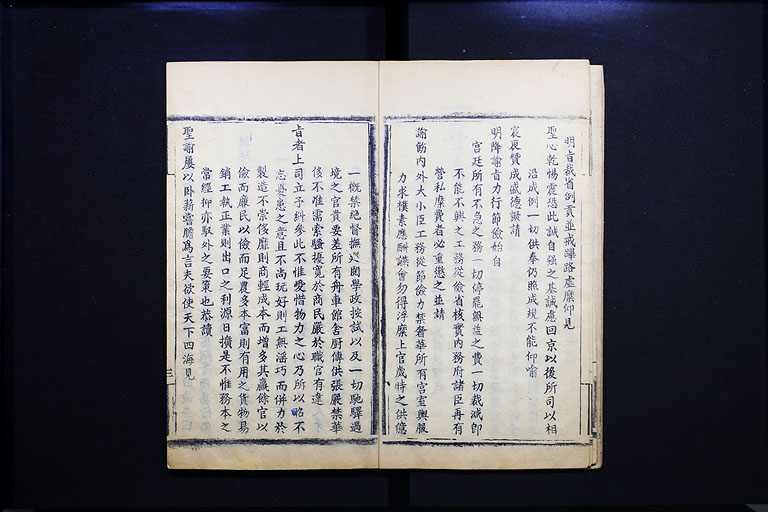 明旨裁省例貢並戒蹕路虛糜仰見
聖心乾惕震恐此誠自强之基誠慮回京以後所司以相
沿成例一切供奉仍照成規不能仰喻
宸衷贊成盛德懇請
明降諭旨力行節儉始自
宮廷所有不急之務一切停罷無益之費一切裁減即
不能不興之工務從儉省核實內務府諸臣再有
營私糜費者必重懲之並請
諭飭內外大小臣工務從節儉力禁奢華所有宮室輿服
力求樸素應酬讌會勿得浮糜上官歲時之供億
一概禁絕督撫巡閱學政按試以及一切馳驛過
境之官貴要差所有舟車館舍廚傳供張嚴禁華
侈不准需索騷擾寬於商民嚴於職官有違
旨者上司立予糾參此不惟愛惜物力之心乃所以昭不
忘憂患之意且不尚玩好則工無淫巧而併力於
製造不崇侈靡則商輕成本而增多其贏餘官以
儉而廉民以儉而足農多本富則有用之貨物易
銷工執正業則出口之利源日擴是不惟務本之
常經抑亦馭外之要策也恭讀
聖諭屢以卧薪嘗膽爲言夫欲使天下四海見
三